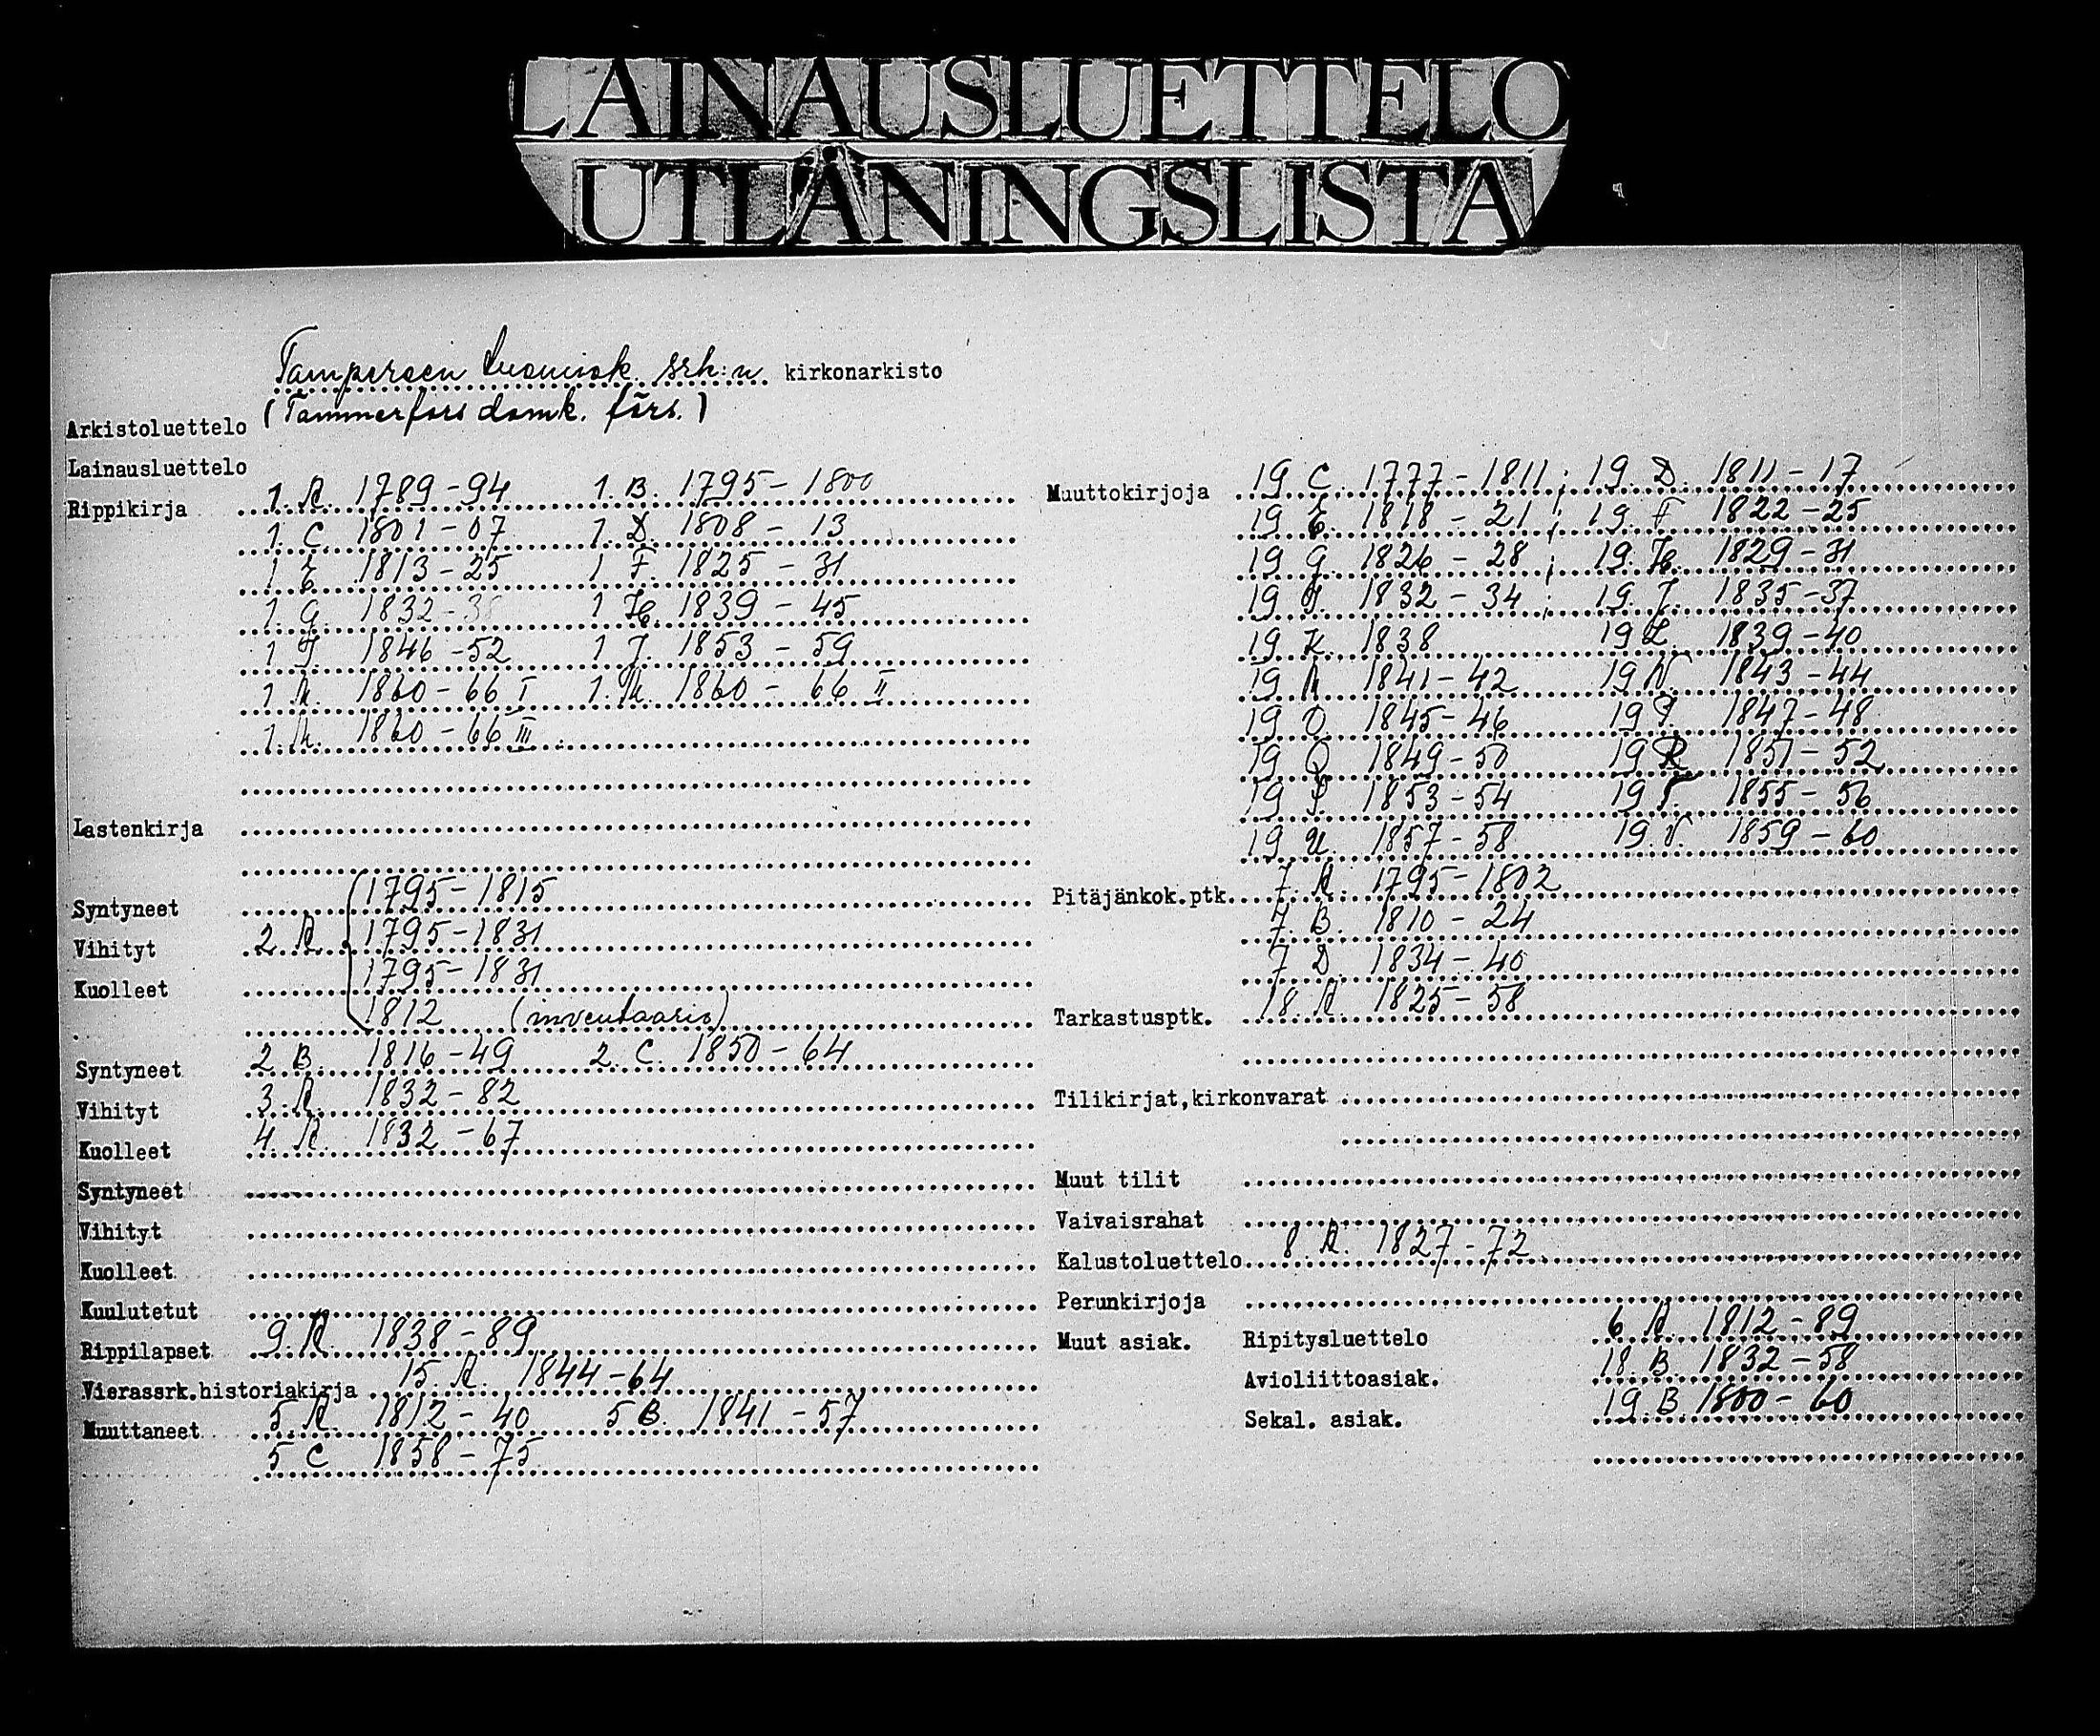 LAINAUSLUETTELO
UTLÅNINGSLISTA
Tampereen tuomiok. srk:n kirkonarkisto
(Tammerfors domk. förs.)
Arkistoluettelo
Lainausluettelo
Rippikirja 1. A. 1789-94 1. B. 1795-1800
1. C. 1801-07 1. D. 1808-13
1 E 1813-25 1 F. 1825-31
1. G. 1832-38 1 H. 1839-45
1 I. 1846-52 1 J. 1853-59
1 K. 1860-66 I 1. K. 1860-66 II
1. K. 1860-66 III
Lastenkirja
Syntyneet 1795-1815
Vihityt 2 A. 1795-1831
Kuolleet 1795-1831
1812 (inventaario)
Syntyneet 2 B. 1816-49 2. C. 1850-64
Vihityt 3. A. 1832-82
Kuolleet 4. A. 1832-67
Syntyneet
Vihityt
Kuolleet
Kuulutetut
Rippilapset 9. A. 1838-89
Vierassrk.historiakirja 15. A. 1844-64
Muuttaneet 5. A. 1812-40 5 B. 1841-57
5 C 1858-75
Muuttokirjoja 19 C. 1777-1811; 19. D. 1811-17
19 E. 1818-21; 19. F 1822-25
19 G. 1826-28; 19. H. 1829-31
19 I. 1832-34; 19. J. 1835-37
19 K. 1838 19 L 1839-40
19 M 1841-42 19 N. 1843-44
19 O 1845-46 19 P. 1847-48
19 Q 1849-50 19 R 1851-52
19 S. 1853-54 19 T. 1855-56
19 U. 1857-58 19. V. 1859-60
Pitäjänkok.ptk. 7. A. 1795-1802
7. B. 1810-24
7 D. 1834-40
Tarkastusptk. 18. A. 1825-58
Tilikirjat,kirkonvarat
Muut tilit
Vaivaisrahat
Kalustoluettelo 8. A. 1827-72
Perunkirjoja
Muut asiak. Ripitysluettelo 6 A. 1812-89
Avioliittoasiak. 18. B. 1832-58
Sekal. asiak. 19. B 1800-60